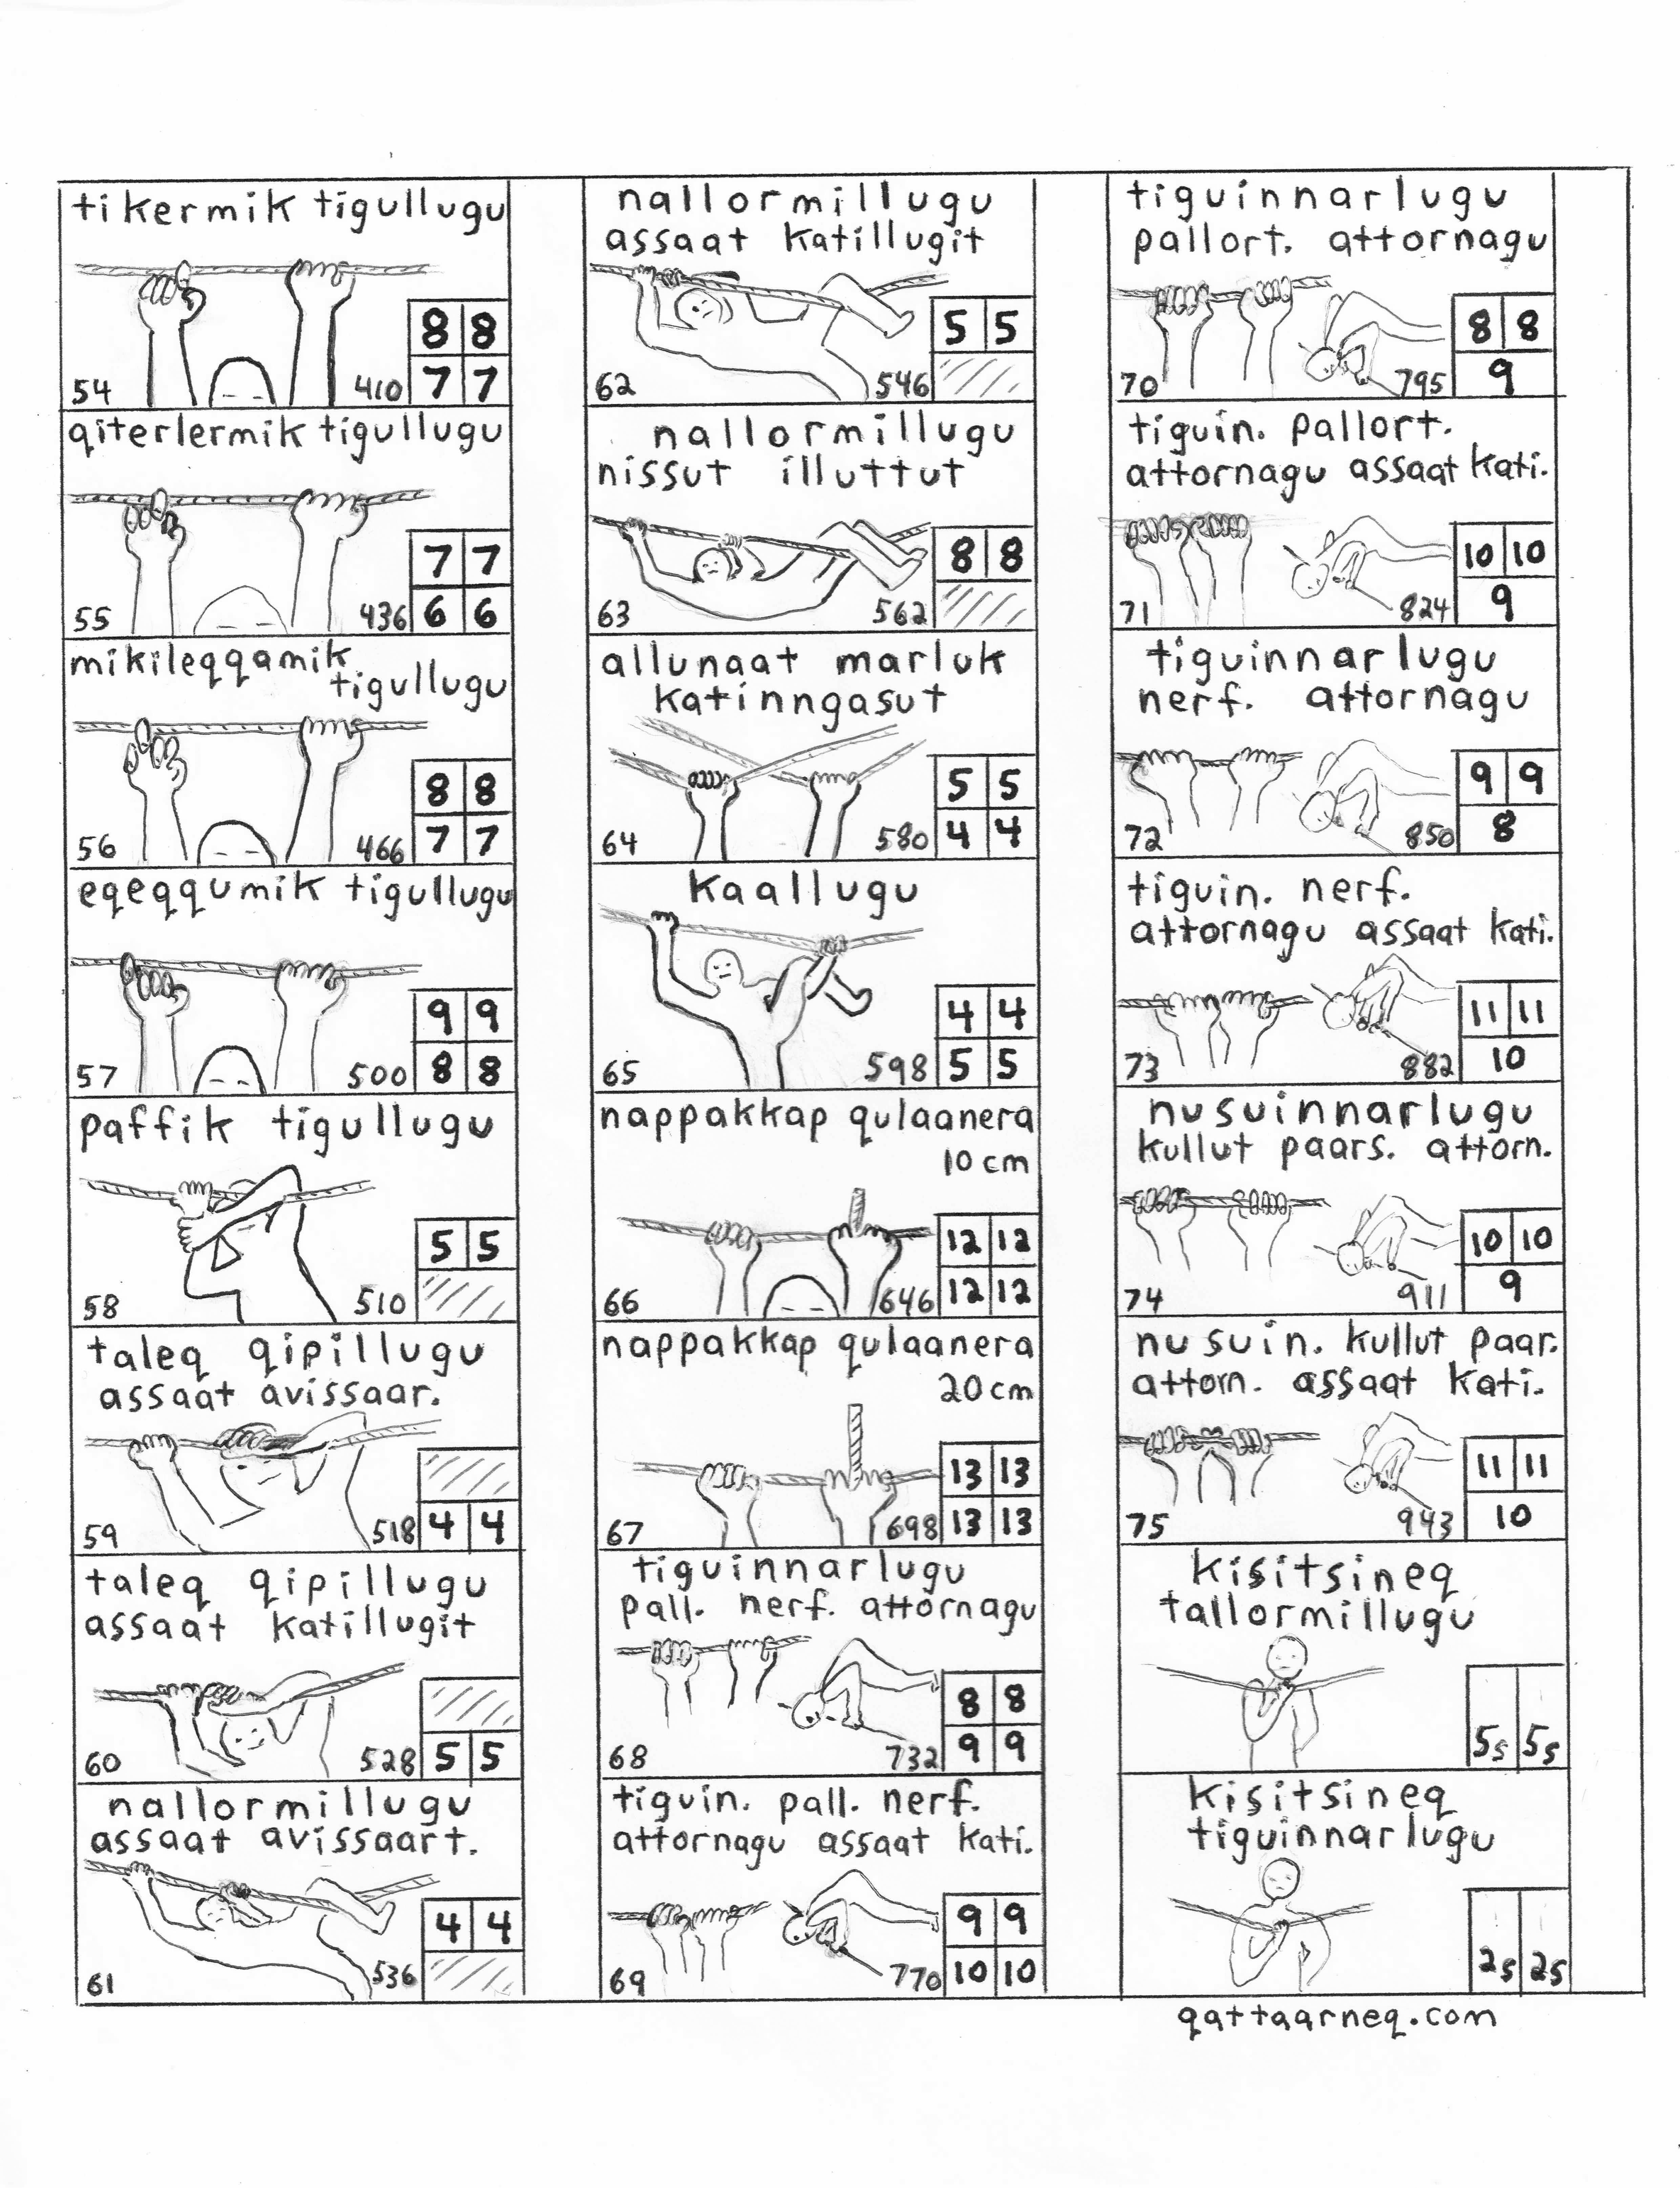 tikermik tigullugu
8 8
54 410 7 7
qiterlermik tigullugu
7 7
55 436 6 6
mikileqqamik
tigullugu
8 8
56 466 7 7
eqeqqumik tigullugu
9 9
57 500 8 8
paffik tigullugu
5 5
58 510
taleq qipillugu
assaat avissaar.
59 518 4 4
taleq qipillugu
assaat katillugit
60 528 5 5
nallormillugu
assaat avissaart.
4 4
61 536
nallormillugu
assaat katillugit
5 5
62 546
nallormillugu
nissut illuttut
8 8
63 562
allunaat marluk
katinngasut
5 5
64 580 4 4
kaallugu
4 4
65 598 5 5
nappakkap qulaanera
10 cm
12 12
66 646 12 12
nappakkap qulaanera
20 cm
13 13
67 698 13 13
tiguinnarlugu
pall. nerf. attornagu
8 8
68 732 9 9
tiguin. pall. nerf.
attornagu assaat kati.
9 9
69 770 10 10
tiguinnarlugu
pallort. attornagu
8 8
70 795 9
tiguin. pallort.
attornagu assaat kati.
10 10
71 824 9
tiguinnarlugu
nerf. attornagu
9 9
72 850 8
tiguin. nerf.
attornagu assaat kati.
11 11
73 882 10
nusuinnarlugu
kullut paars. attorn.
10 10
74 911 9
nusuin. kullut paar.
attorn. assaat kati.
11 11
75 943 10
kisitsineq
tallormillugu
5s 5s
kisitsineq
tiguinnarlugu
2s 2s
qattaarneq.com